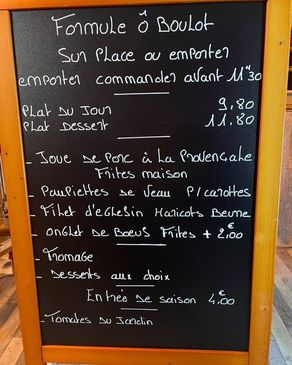 Formule Ô Boulot
Sur Place ou emporter
emporter commander avant 11"30
Plat du Jour 9,80
Plat Dessert 11.80
- Joue de Porc à la Provençale
Frites maison
- Paupiettes de Veau P/carottes
- Filet d'eglefin Haricots Beurre
- onglet de Boeuf Frites + 2,00
- Fromage
- Desserts aux choix
Entrée de saison 4,00
- Tomates du Jardin